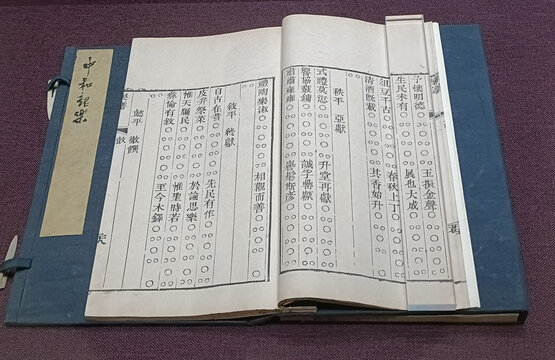 中和韶樂
予懷明德 玉振金聲
生民未有 展也大成
俎豆千古 春秋上丁
清酒既載 其香始升
秩平 亞獻
式禮莫愆 升堂再獻
響協鼖鏞 誠孚罍甗
肅肅雍雍 譽髦斯彥
禮陶樂淑 相觀而善
敘平 終獻
自古在昔 先民有作
皮弁祭菜 於論思樂
惟天牖民 惟聖時若
彝倫攸敘 至今木鐸
懿平 徹饌